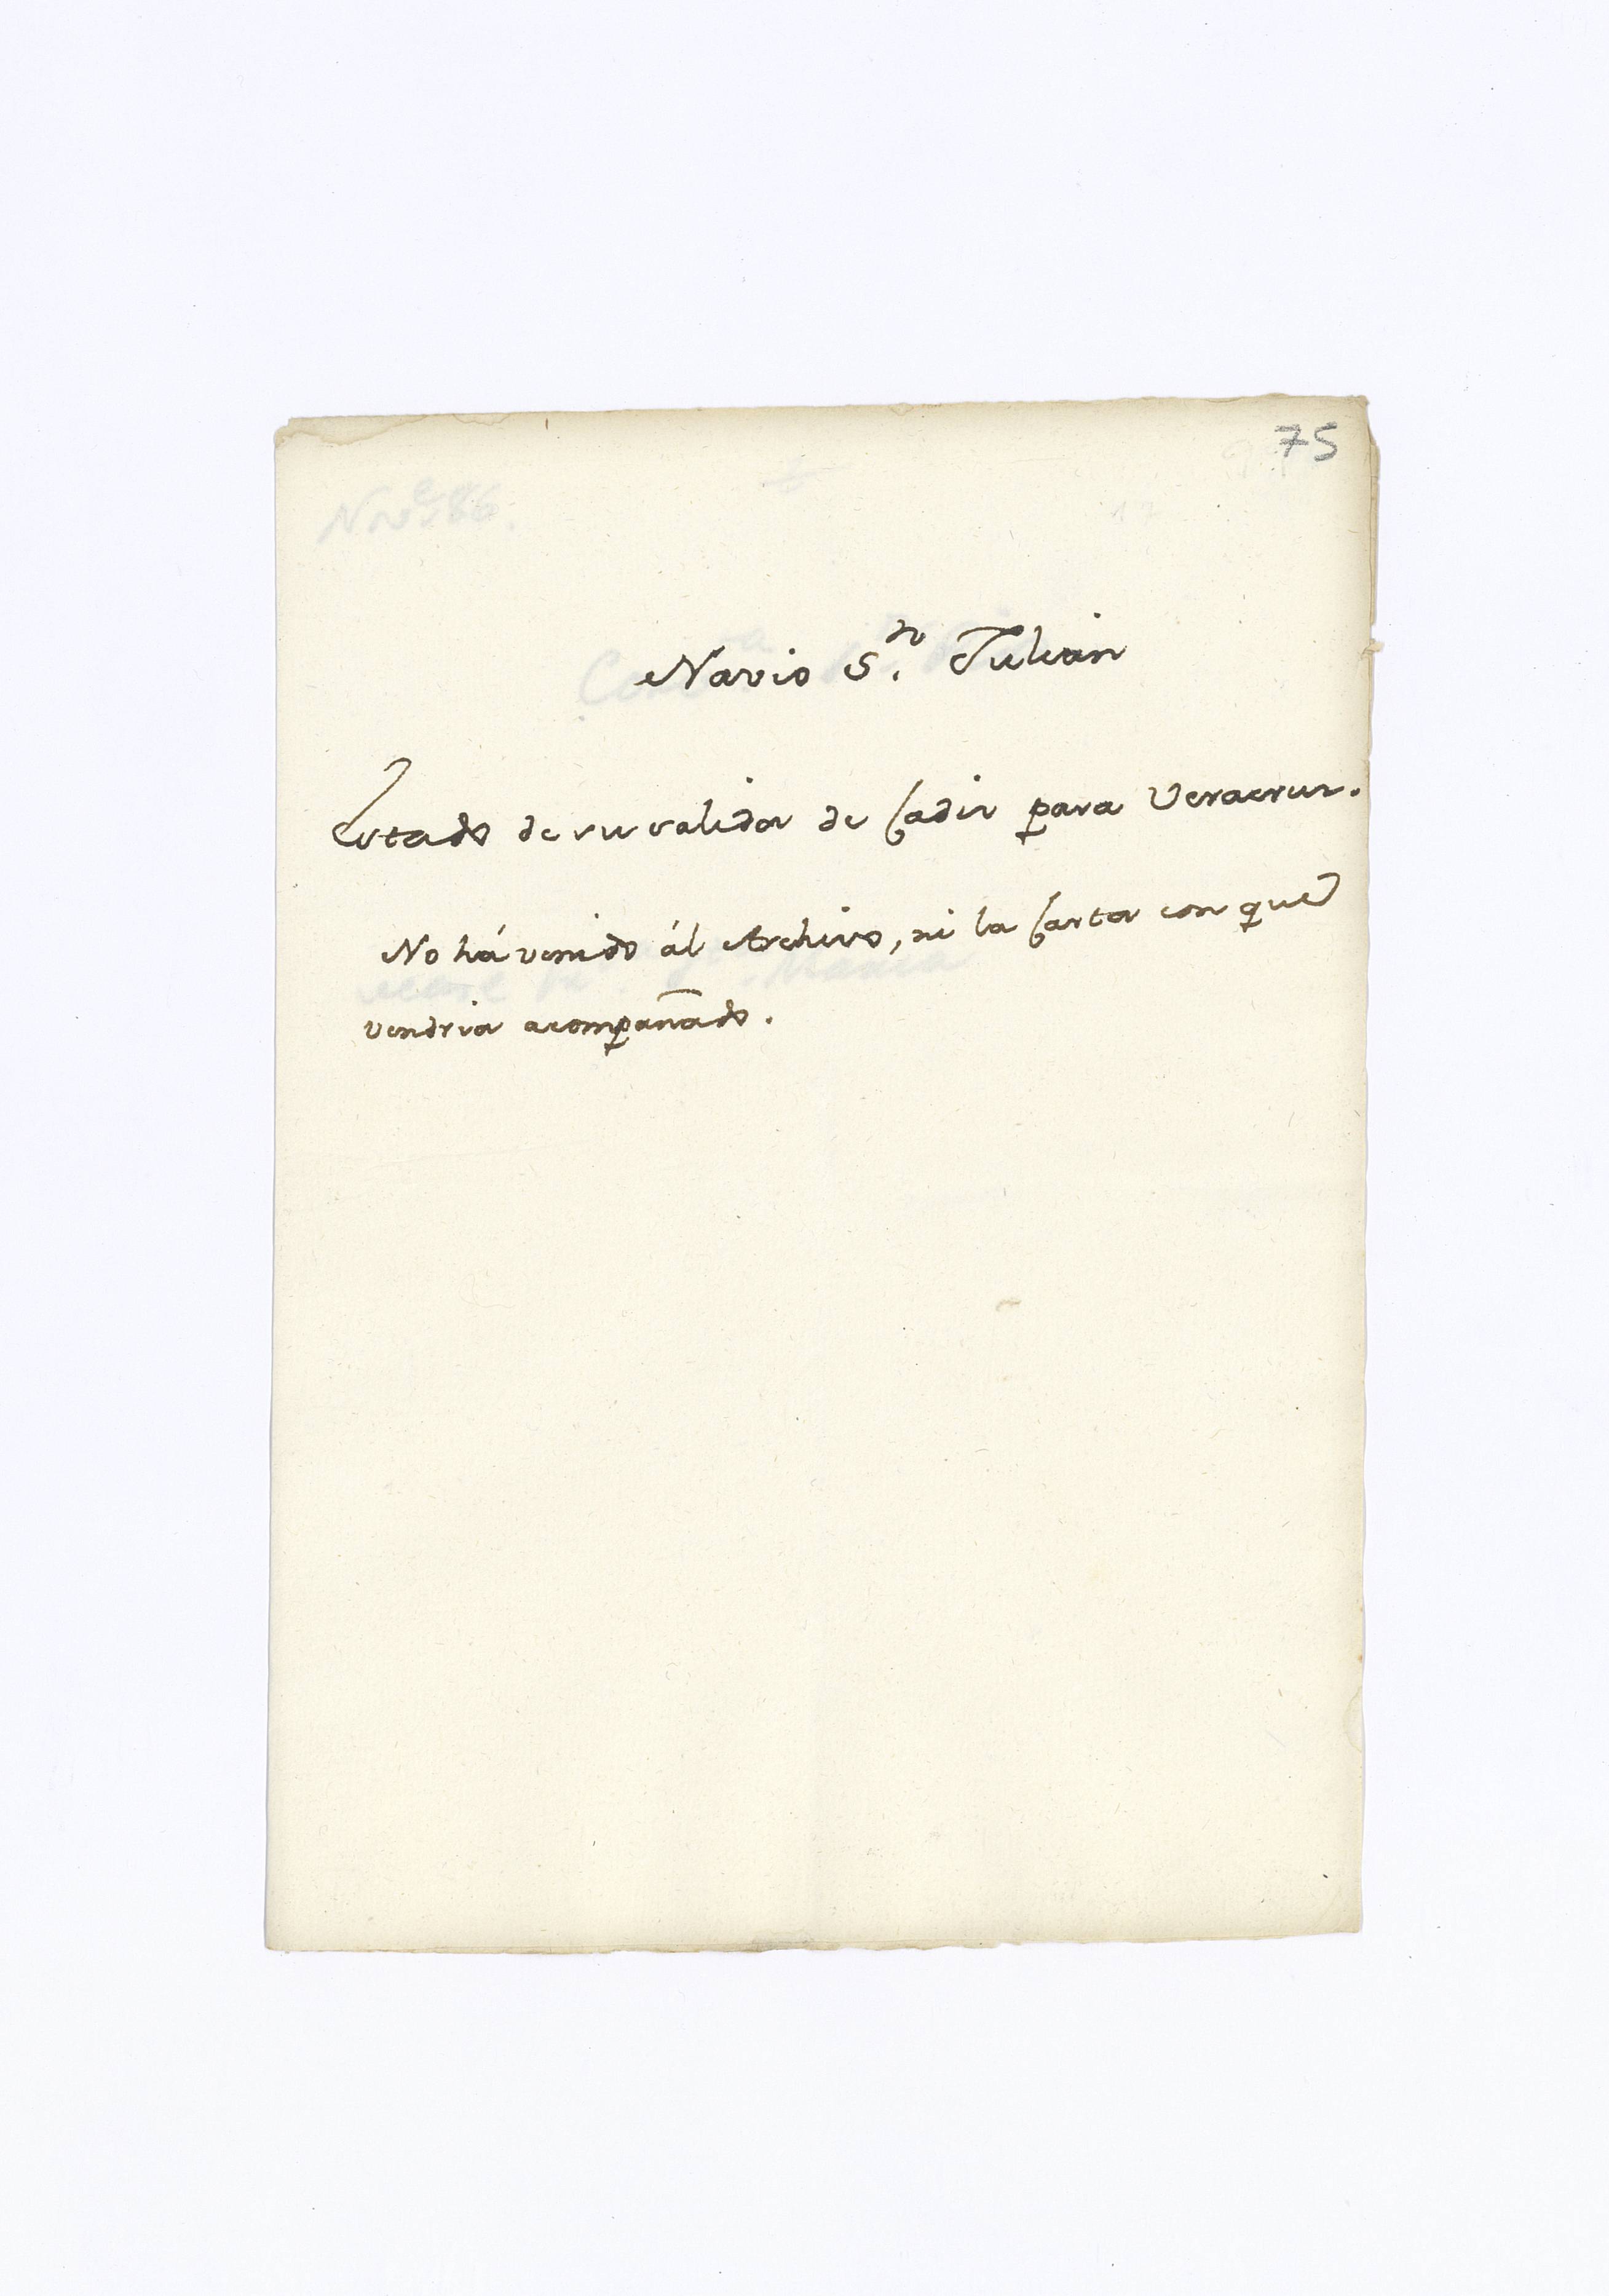 75
Navio S.n Julian
Estado de su salida de Cadiz para Veracruz.
No há venido ál Archivo, ni la Carta con que
vendria acompañado.